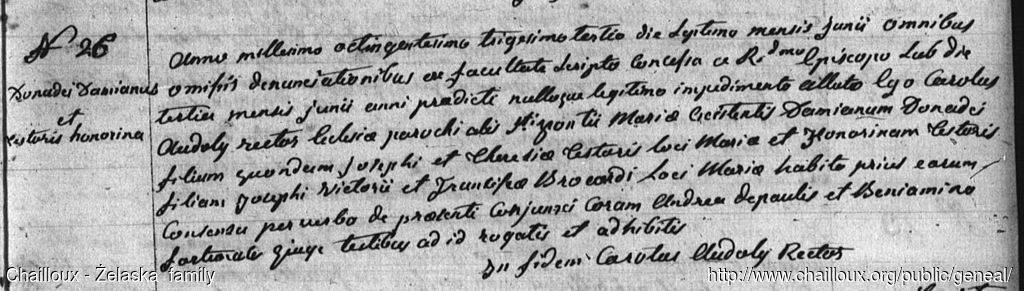 N° 26
Donadei Damianus
et
Cestoris honorina
Anno millesimo octingentesimo trigesimo tertio die septimo mensis junii omnibus
omissis denunciationibus ex facultate scripto concessa a R.dmo Episcopo sub die
tertia mensis junii anni predicti nulloque legitimo impedimento allato Ego Carolus
Audoly rector Ecclesiæ parochialis Sti pontii Mariæ existentis Damianum Donadei
filium quondam Josephi et Theresiæ Cestoris loci Mariæ et Honorinam Cestoris
filiam Josephi Victorii et Franciscæ Brocardi loci Mariæ habito prius earum
Consensu per verba de præsenti Conjunxi Coram Andrea depaulis et Beniamino
testibus ad id rogatis et adhibitis
In fidem Carolus Audoly Rector
Chailloux - Żelaska family
http://www.chailloux.org/public/geneal/